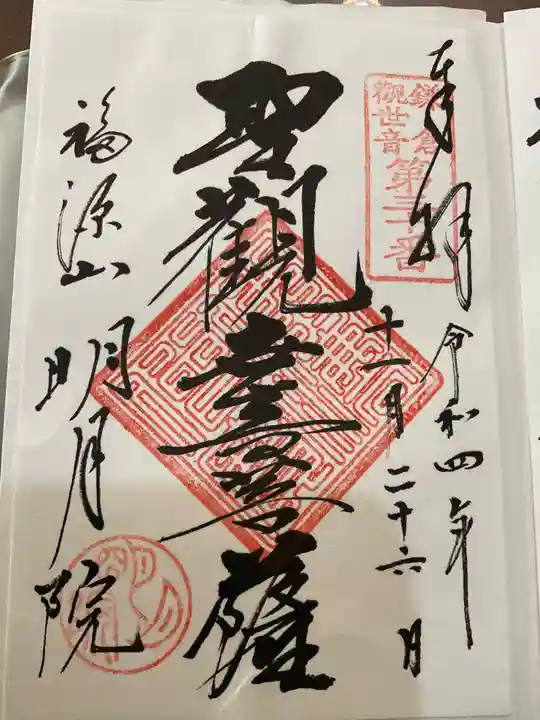 奉拝
鎌倉
觀世音
第三十番
令和四年
十一月二十六日
聖觀音菩薩
福源山
明月院